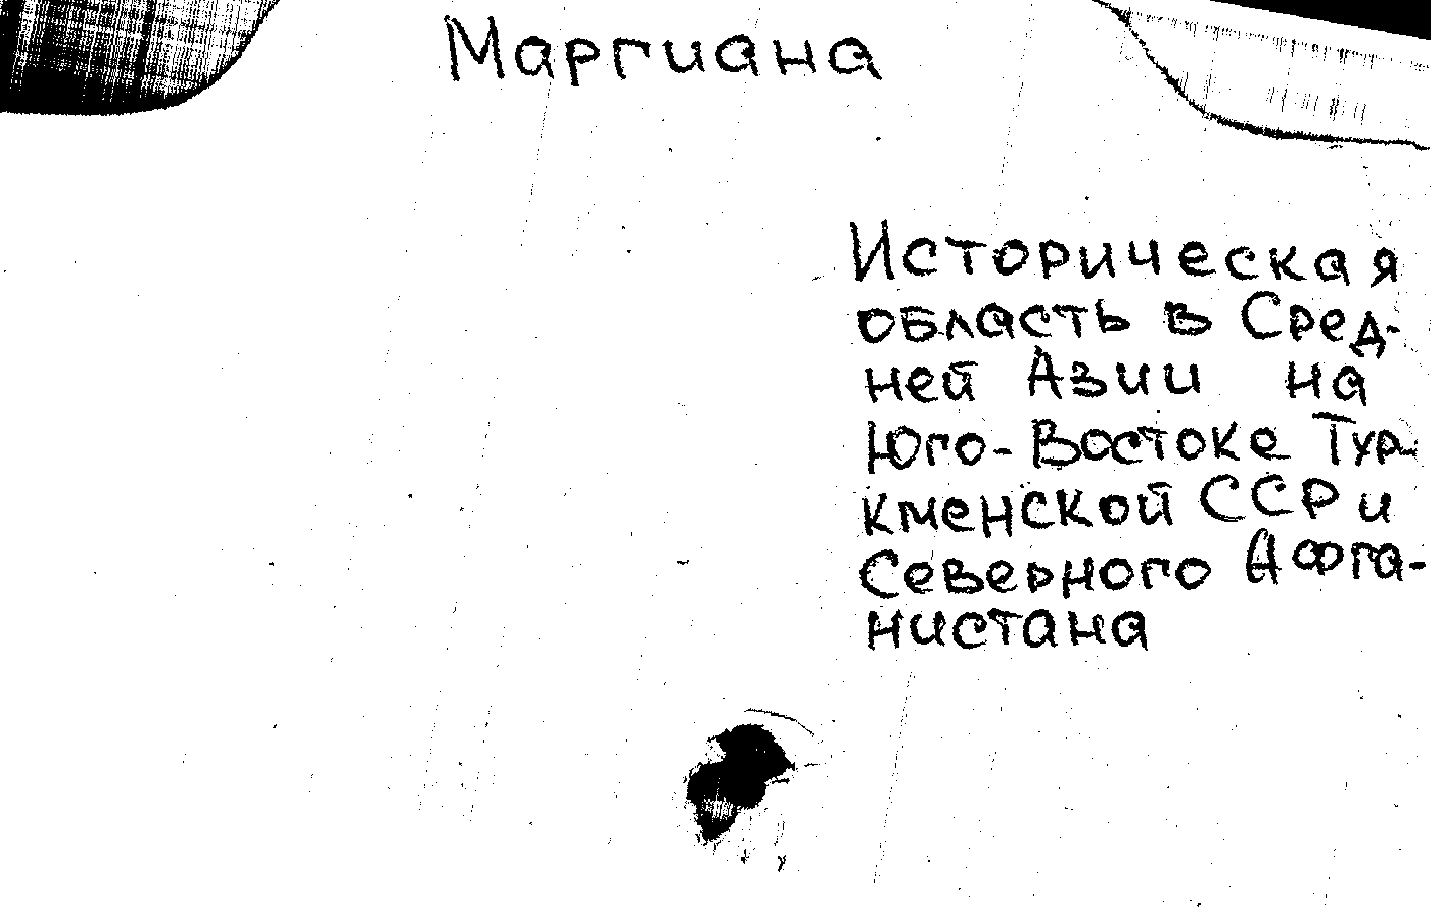 Маргиана
Историческая
область в Сред-
ней Азии на
Юго-Востоке Тур-
кменской ССР и
Северного Афга-
нистана